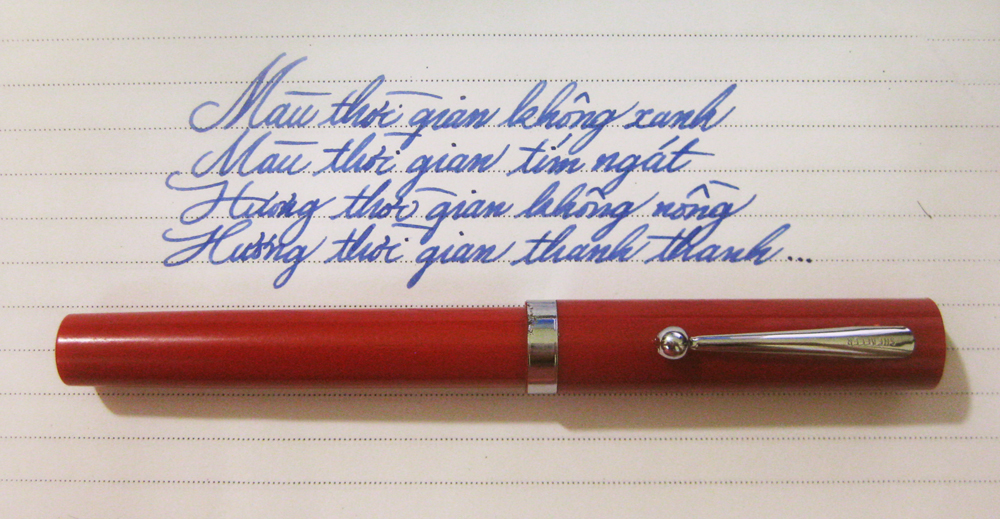 Màu thời gian không xanh
Màu thời gian tím ngát
Hương thời gian không nồng
Hương thời gian thanh thanh...